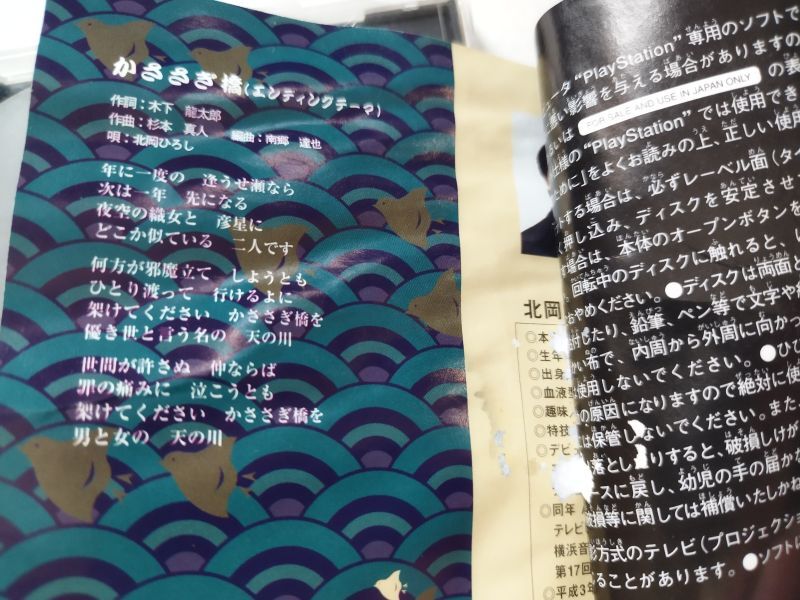 かささぎ橋(エンディングテーマ)
作詞：木下 龍太郎
作曲：杉本 真人 編曲：南郷 達也
唄：北岡ひろし
年に一度の 逢うせ瀬なら
次は一年 先になる
夜空の織女と 彦星に
どこか似ている 二人です
何方が邪魔立て しようとも
ひとり渡って 行けるよに
架けてください かささぎ橋を
優き世と言う名の 天の川
世間が許さぬ 仲ならば
罪の痛みに 泣こうとも
架けてください かささぎ橋を
男と女の 天の川
北岡
◎本
◎生年
◎出身
◎血液型
◎趣味
◎特技
◎デビ
◎同年
テレビ
横浜音
第17回
◎平成3年
ータ "PlayStation" 専用のソフトで
悪い影響を与える場合がありますの
FOR SALE AND USE IN JAPAN ONLY の表
仕様の "PlayStation" では使用でき
めに」をよくお読みの上、正しい使用
トする場合は、必ずレーベル面（タイ
く押し込み、ディスクを安定させ
す場合は、本体のオープンボタンを
回転中のディスクに触れると、し
おやめください。●ディスクは両面と
付けたり、鉛筆、ペン等で文字や
い布で、内周から外周に向かっ
は使用しないでください。●ひび
の原因になりますので絶対に使
は保管しないでください。また
落としたりすると、破損しけが
ースに戻し、幼児の手の届か
破損等に関しては補償いたしかね
影方式のテレビ（プロジェクショ
ることがあります。●ソフトに